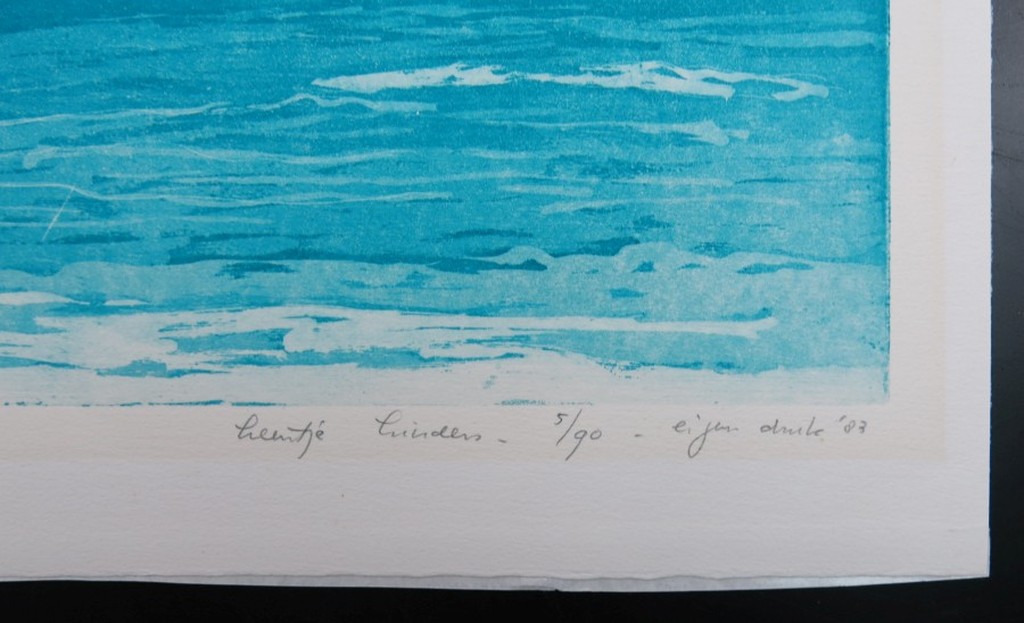 heentjé hinders - 5/90 - eigen druk '83